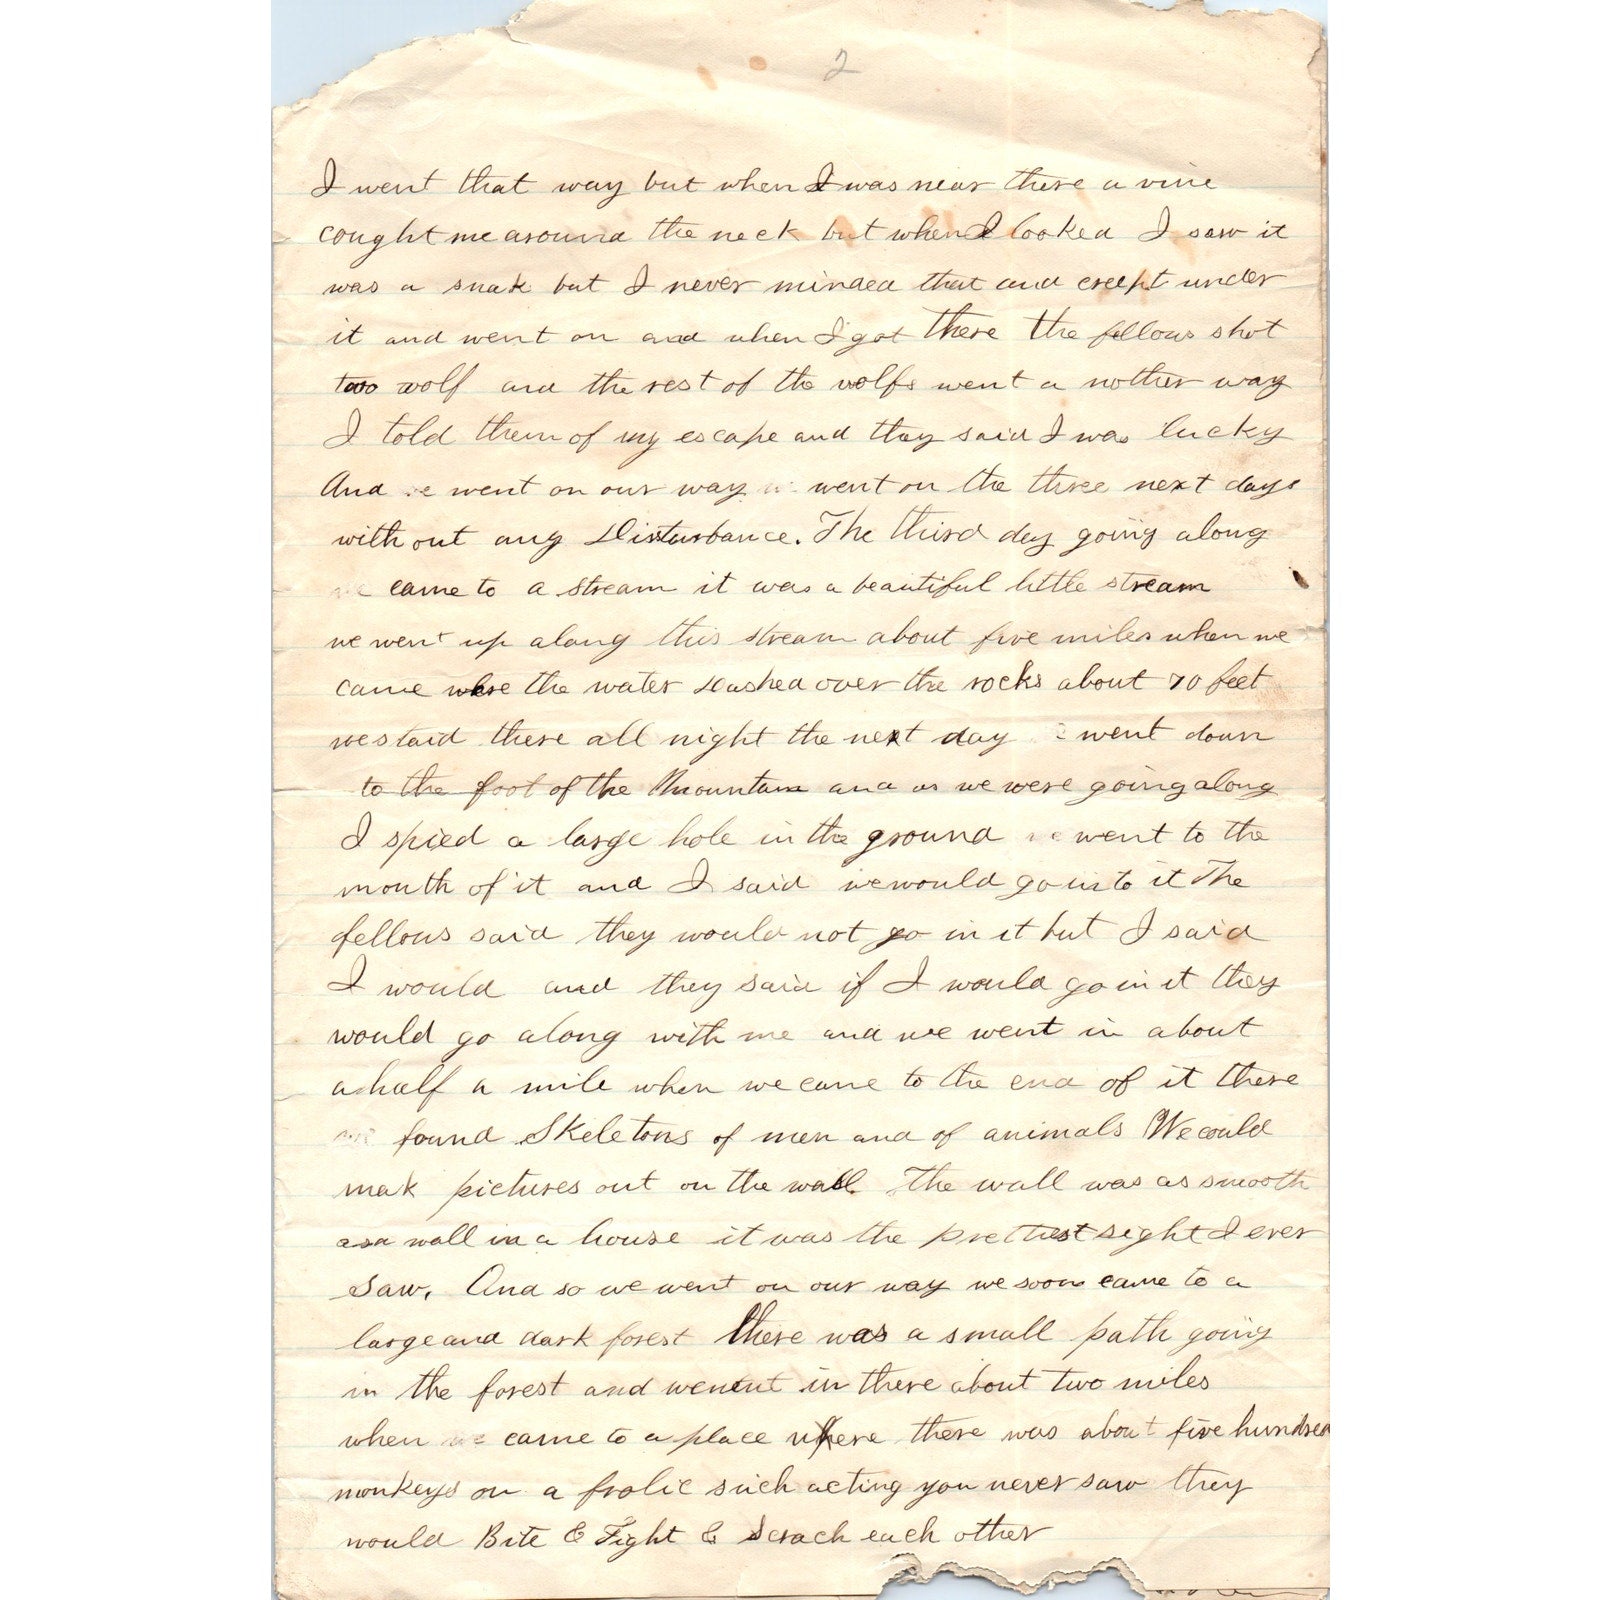 2
I went that way but when I was near there a vine
cought me around the neck but when I looked I saw it
was a snak but I never minded that and creept under
it and went on and when I got there the fellows shot
two wolf and the rest of the wolfs went a nother way
I told them of my escape and they said I was lucky
And we went on our way we went on the three next days
with out any Disturbance. The third day going along
we came to a stream it was a beautiful little stream
we went up along this stream about five miles when we
came where the water dashed over the rocks about 70 feet
we staid there all night the next day we went down
to the foot of the Mountain and as we were going along
I spied a large hole in the ground we went to the
mouth of it and I said we would go into it The
fellows said they would not go in it but I said
I would and they said if I would go in it they
would go along with me and we went in about
a half a mile when we came to the end of it there
we found Skeletons of men and of animals We could
mak pictures out on the wall. The wall was as smooth
as a wall in a house it was the prettiest sight I ever
saw. And so we went on our way we soon came to a
large and dark forest there was a small path going
in the forest and went in there about two miles
when we came to a place where there was about five hundred
monkeys on a frolic such acting you never saw they
would Bite & Fight & Scrach each other